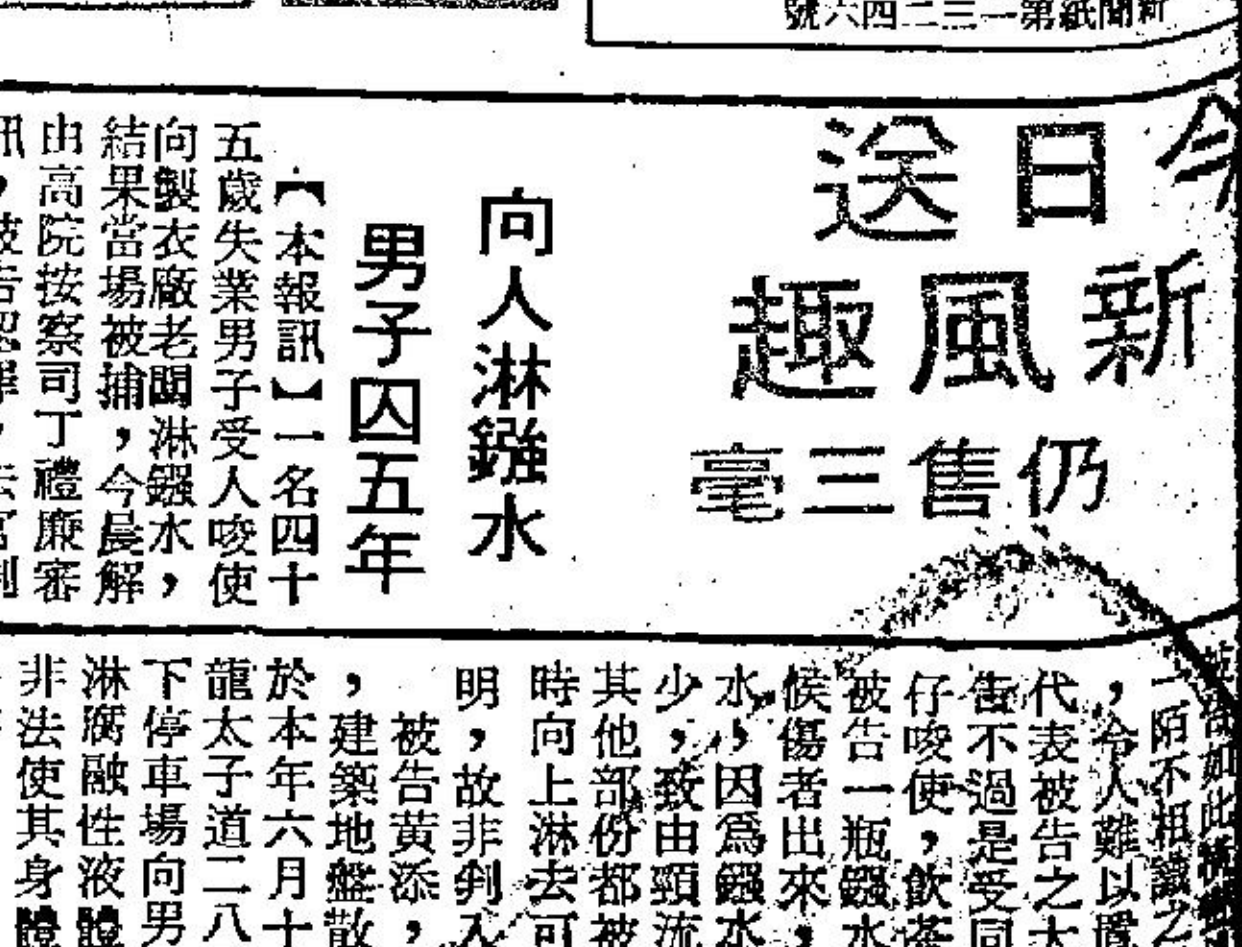 新聞紙第一三二四六號
今日送
新風趣
仍售三毫
向人淋鏹水
男子囚五年
【本報訊】一名四十
五歲失業男子受人唆使
向製衣廠老闆淋鏹水，
結果當場被捕，今晨解
由高院按察司丁禮廉審
訊，被告認罪，法官判
一陌不相識之
，令人難以置
代表被告之大
告不過是受同
仔唆使，飲茶
被告一瓶鏹水
候傷者出來，
水，因為鏹水
少，致由頸流
其他部份都被
時向上淋去可
明，故非判入
被告黃添，
，建築地盤散
於本年六月十
龍太子道二八
下停車場向男
淋腐融性液體
非法使其身體